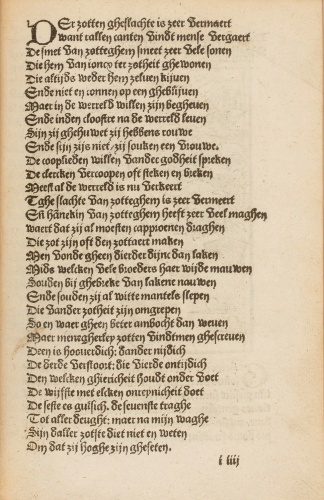 DEr zotten gheslachte is zeer vermaert
want tallen canten vindt mense vergaert
De smet van zotteghem smeet zeer vele sonen
Die hem van ioncx ter zotheit ghewonen
Die altijds weder hem zeluen kijuen
Ende niet en connen op een ghebliuen
Maer in de werreld willen zijn begheuen
Ende inden clooster na de werreld leuen
Zijn zij ghehuwet zij hebbens rouwe
Ende sijn zijs niet/ zij souken een vrouwe.
De cooplieden willen vander godheit spreken
De clercken vercoopen oft steken en breken
Meest al de werreld is nu verkeert
Tghe slachte van zotteghem is zeer vermeert
Eñ hānekin van zotteghem heeft zeer veel maghen
waert dat zij al moesten cappioenen draghen
Die zot zijn oft den zottaert maken
Men vonde gheen dierder dijnc dan laken
Mids welcken vele broeders haer wijde mauwen
Souden bij ghebreke van lakene nauwen
Ende souden zij al witte mantels slepen
Die vander zotheit zijn omgrepen
So en waer gheen beter ambocht dan weuen
Maer menegherley zotten vindtmen ghescreuen
Deen is hoouerdich: dander nijdich
De derde verstoort: die vierde ontijdich
Den welcken ghiericheit houdt onder voet
De vijfste met elcken onreynicheit doet
De seste es gulsich. de seuenste traghe
Tot aller deught: maer na mijn waghe
Zijn daller zotste diet niet en weten
Om dat zij hoghe zijn gheseten.
i iiij